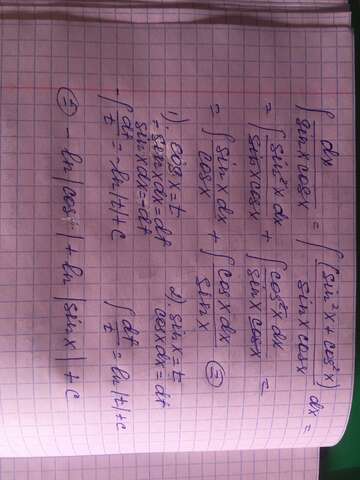 ∫ dx / (sin x cos x) = ∫ (sin²x + cos²x) / (sin x cos x) dx =
= ∫ sin²x dx / (sin x cos x) + ∫ cos²x dx / (sin x cos x) =
= ∫ sin x dx / cos x + ∫ cos x dx / sin x ⊜
1). cos x = t 2). sin x = t
= sin x dx = dt cos x dx = dt
sin x dx = -dt
-∫ dt / t = -ln|t| + C ∫ dt / t = ln|t| + C
⊜ - ln|cos x| + ln|sin x| + C